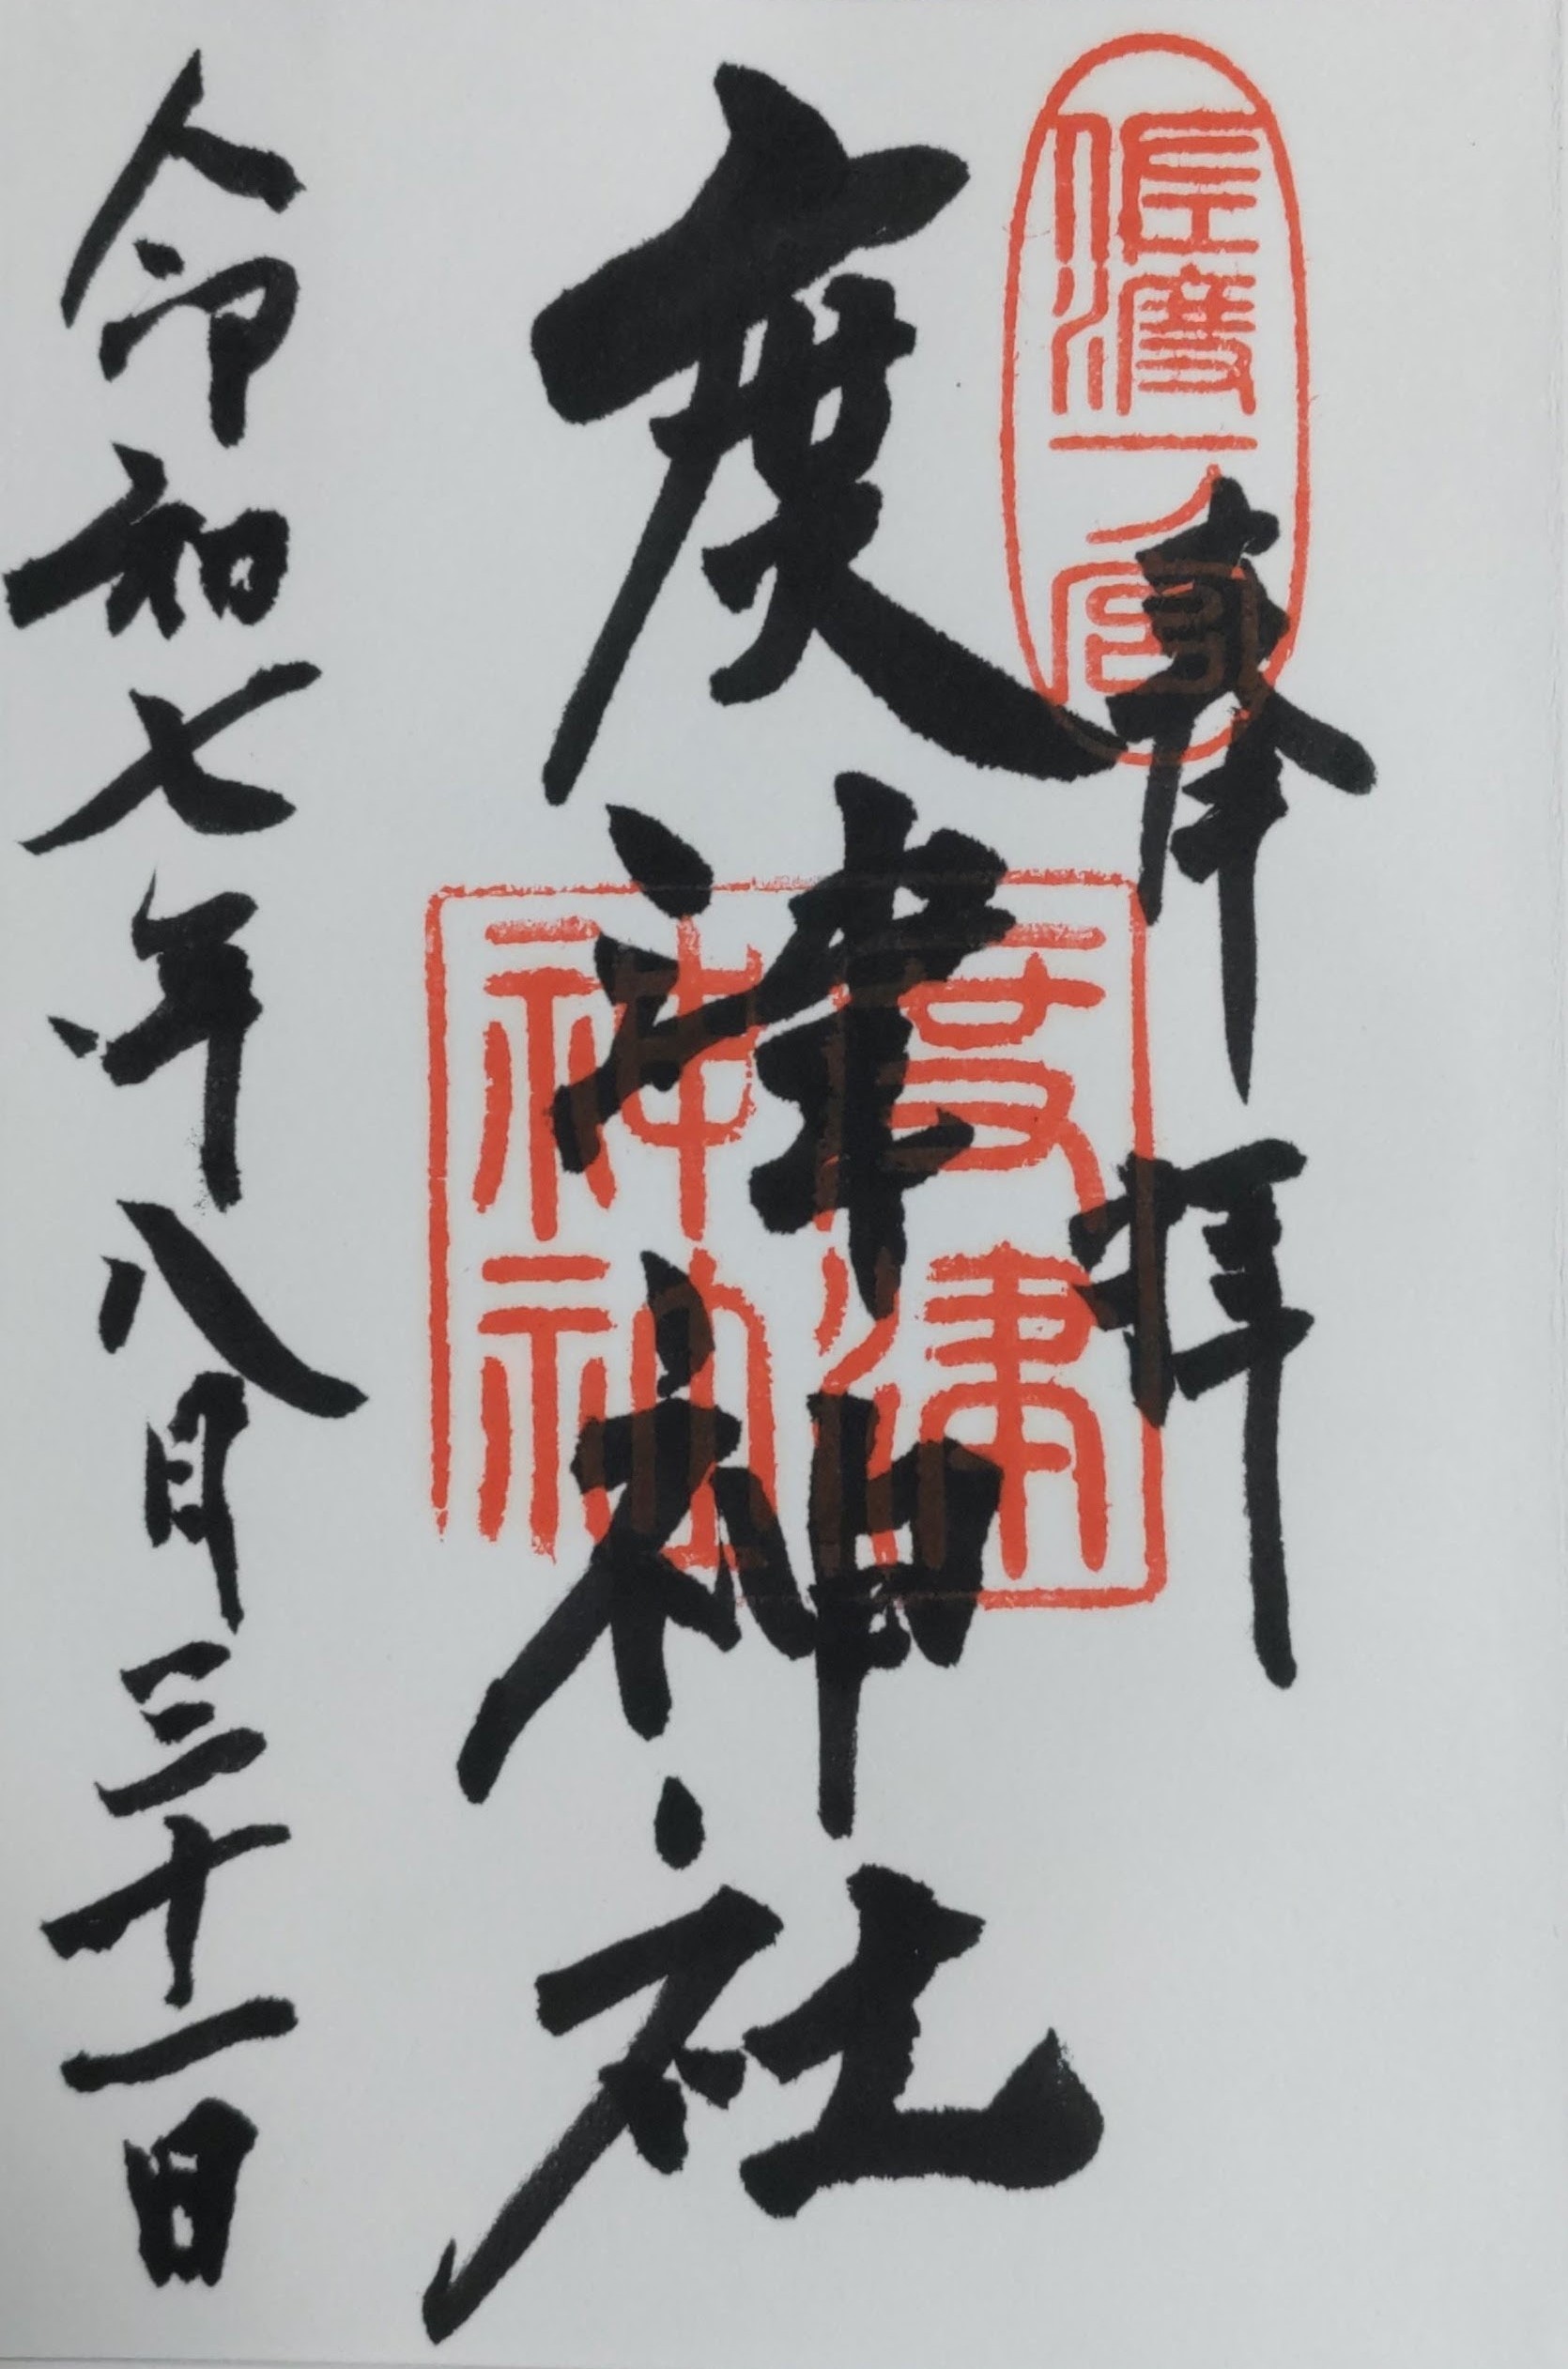 奉拝
佐渡一宮
度津神社
度津神社
令和七年八月三十一日